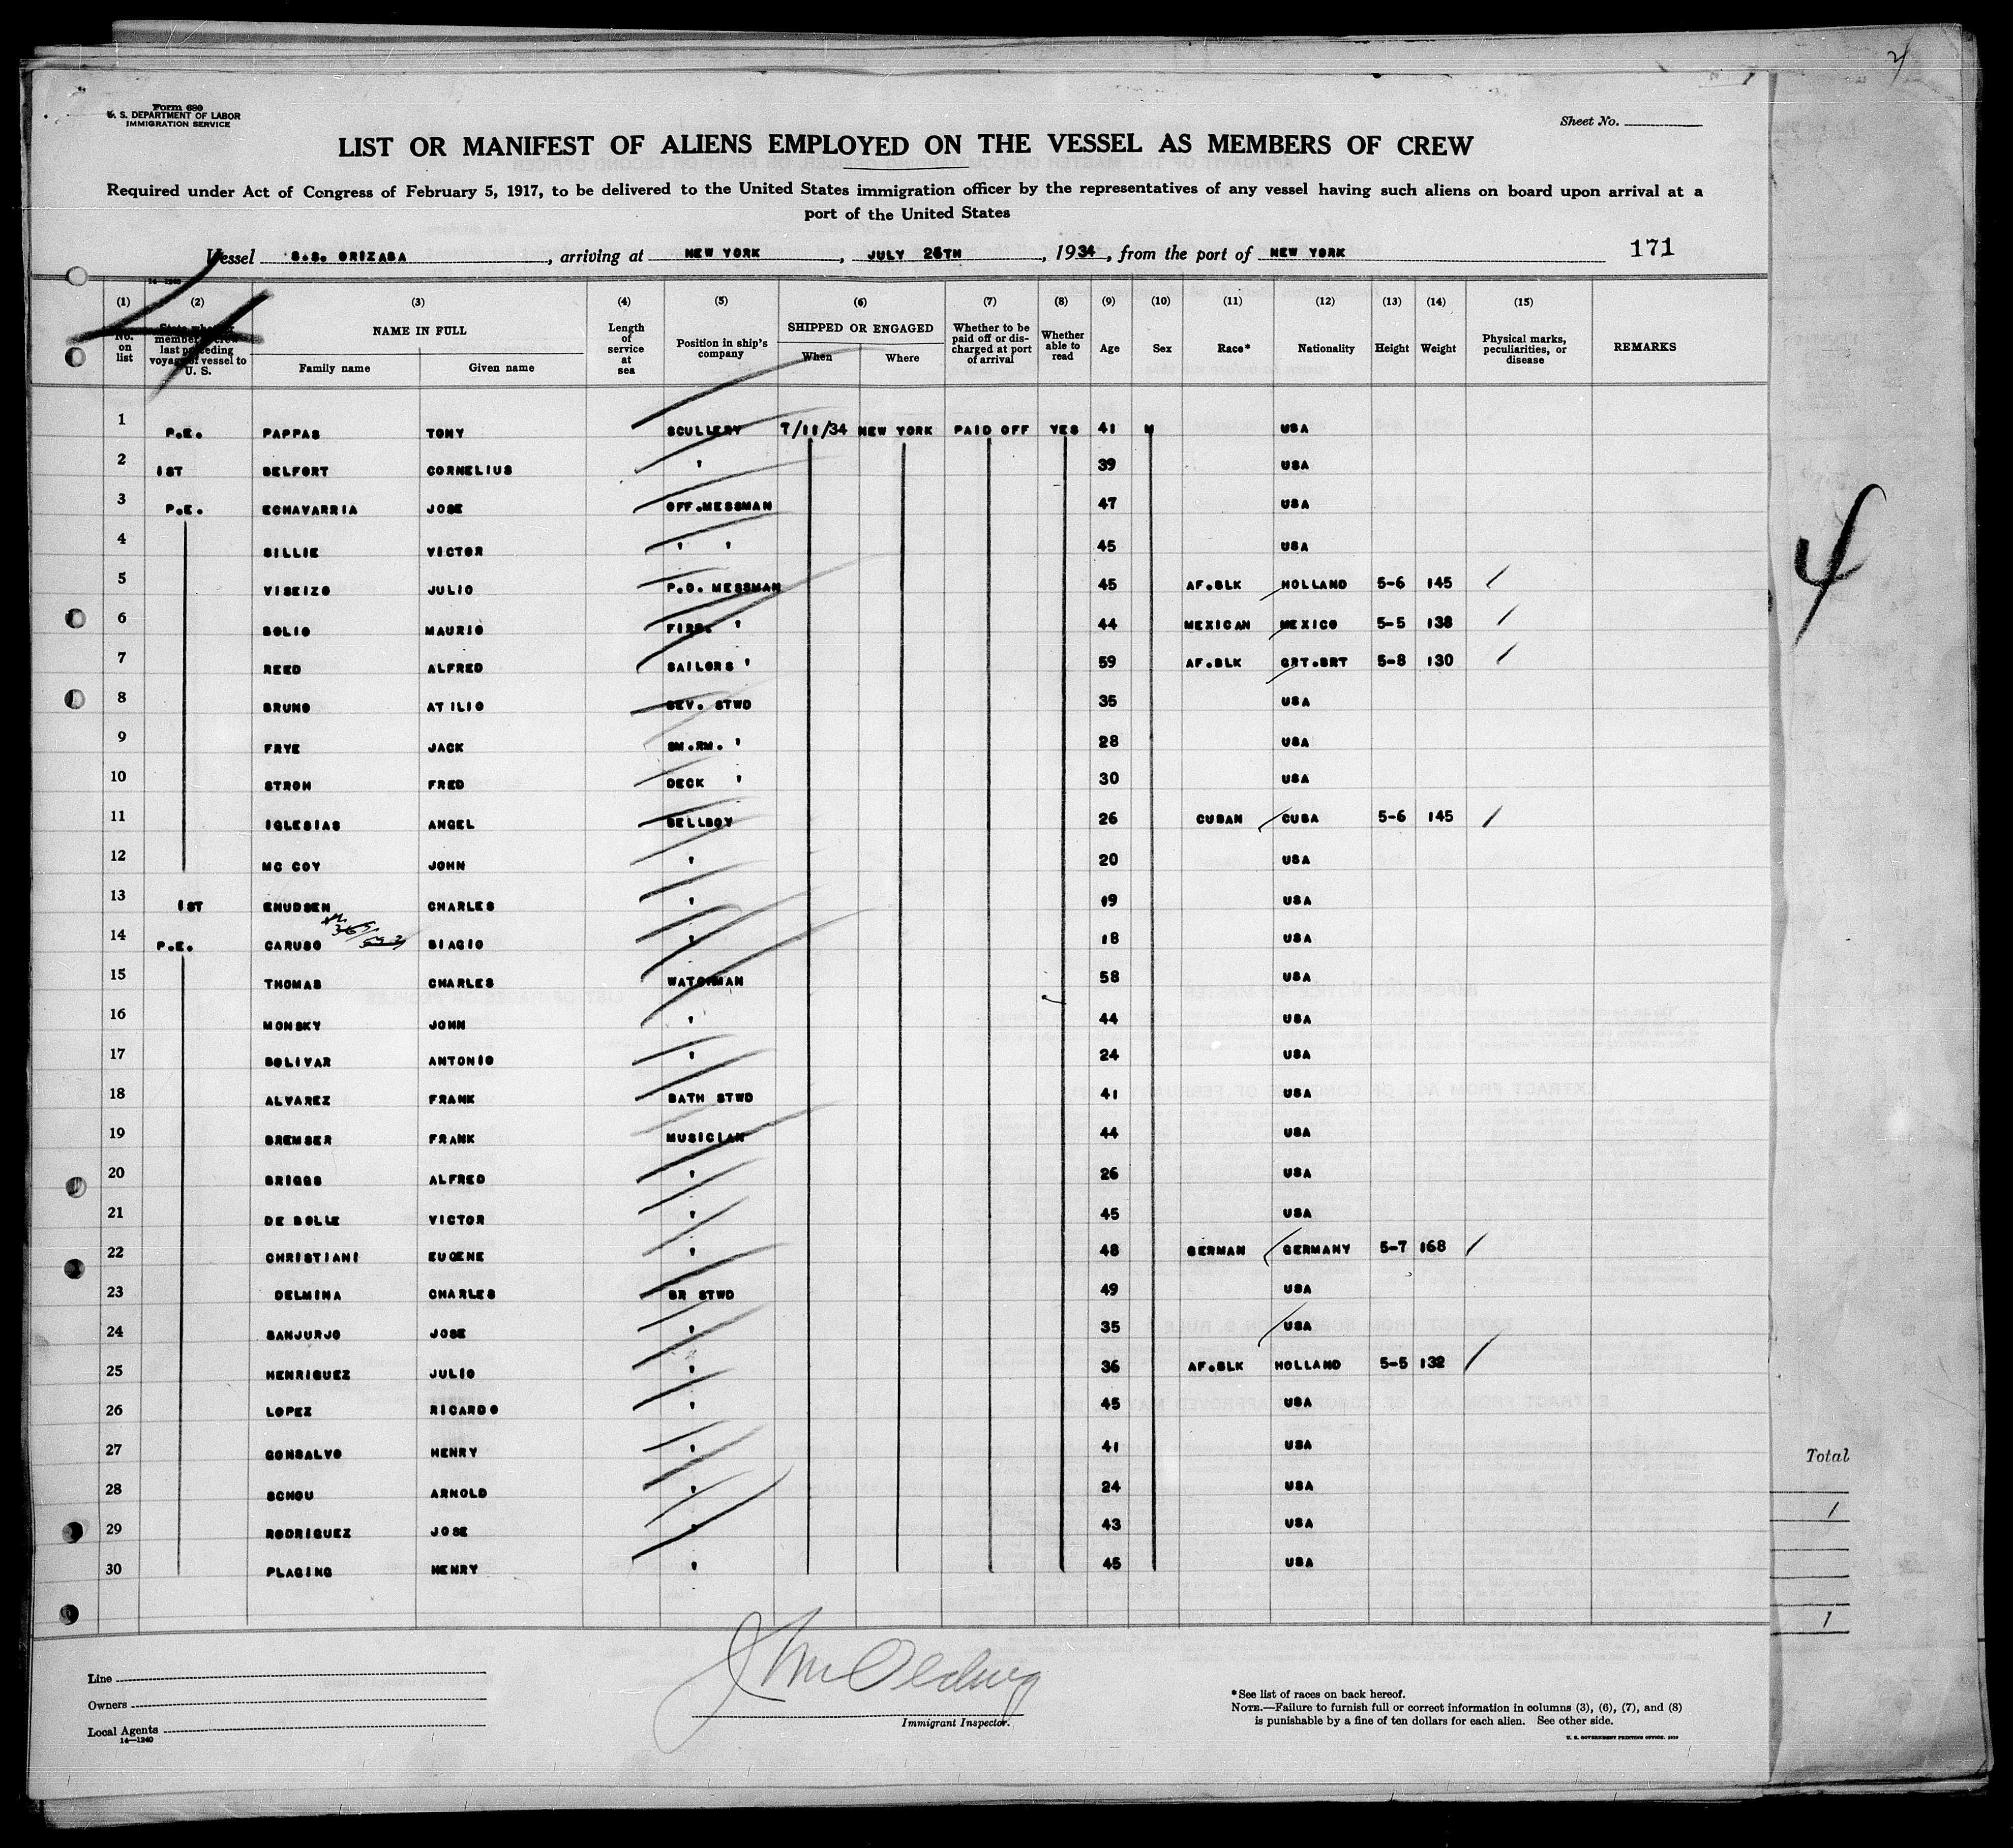 Form 680
U. S. DEPARTMENT OF LABOR
IMMIGRATION SERVICE
Sheet No.
LIST OR MANIFEST OF ALIENS EMPLOYED ON THE VESSEL AS MEMBERS OF CREW
Required under Act of Congress of February 5, 1917, to be delivered to the United States immigration officer by the representatives of any vessel having such aliens on board upon arrival at a
port of the United States
Vessel S.S. ORIZABA, arriving at NEW YORK, JULY 26TH, 1934, from the port of NEW YORK 171
14—1240
(1) (2) (3) (4) (5) (6) (7) (8) (9) (10) (11) (12) (13) (14) (15)
No. on list State whether member of crew last preceding voyage of vessel to U. S. NAME IN FULL Family name Given name Length of service at sea Position in ship's company SHIPPED OR ENGAGED When Where Whether to be paid off or discharged at port of arrival Whether able to read Age Sex Race* Nationality Height Weight Physical marks, peculiarities, or disease REMARKS
1 P.E. PAPPAS TONY SCULLERY 7/11/34 NEW YORK PAID OFF YES 41 M USA
2 1ST BELFORT CORNELIUS ' 39 USA
3 P.E. ECHAVARRIA JOSE OFF.MESSMAN 47 USA
4 SILLIE VICTOR ' ' 45 USA
5 VISEIZO JULIO P.O. MESSMAN 45 AF.BLK HOLLAND 5-6 145
6 SOLIO MAURIO FIRE. ' 44 MEXICAN MEXICO 5-5 138
7 REED ALFRED SAILORS ' 59 AF.BLK GRT.BRT 5-8 130
8 BRUNO ATILIO BEV. STWD 35 USA
9 FRYE JACK SM.RM. ' 28 USA
10 STROH FRED DECK ' 30 USA
11 IGLESIAS ANGEL BELLBOY 26 CUBAN CUBA 5-6 145
12 MC COY JOHN ' 20 USA
13 1ST ENUDSEN CHARLES ' 19 USA
14 P.E. CARUSO BIAGIO ' 18 USA
15 THOMAS CHARLES WATCHMAN 58 USA
16 MONSKY JOHN ' 44 USA
17 BOLIVAR ANTONIO ' 24 USA
18 ALVAREZ FRANK BATH STWD 41 USA
19 BREMSER FRANK MUSICIAN 44 USA
20 BRIGGS ALFRED ' 26 USA
21 DE BOLLE VICTOR ' 45 USA
22 CHRISTIANI EUGENE ' 48 GERMAN GERMANY 5-7 168
23 DELMINA CHARLES BR STWD 49 USA
24 SANJURJO JOSE ' 35 USA
25 HENRIQUEZ JULIO ' 36 AF.BLK HOLLAND 5-5 132
26 LOPEZ RICARDO ' 45 USA
27 GONSALVO HENRY ' 41 USA
28 SCHOU ARNOLD ' 24 USA
29 RODRIQUEZ JOSE ' 43 USA
30 PLAGING HENRY ' 45 USA
4
Total
1
1
Line
Owners
Local Agents
14—1240
Immigrant Inspector.
*See list of races on back hereof.
NOTE.—Failure to furnish full or correct information in columns (3), (6), (7), and (8)
is punishable by a fine of ten dollars for each alien. See other side.
U. S. GOVERNMENT PRINTING OFFICE